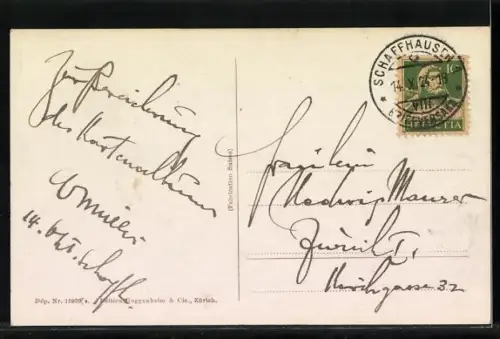 Zur Bereicherung
des Kartenalbums
14. Okt. Schaffh.
Dép. Nr. Guggenheim & Cie., Zürich.
(Fabrication Suisse)
SCHAFFHAUSEN
14.X.
VIII
BRIEFVERSAND
10
HELVETIA
Fräulein
Hedwig Maurer
Zürich I.
Kirchgasse 32